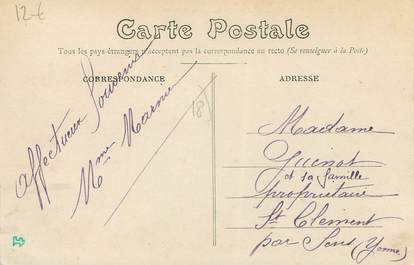 12-€
Carte Postale
Tous les pays étrangers n'acceptent pas la correspondance au recto (Se renseigner à la Poste)
CORRESPONDANCE
affectueux Souvenirs
Mme Marnier
18
ADRESSE
Madame
Guenot
et sa famille
propriétaire
St Clement
par Sens (Yonne)